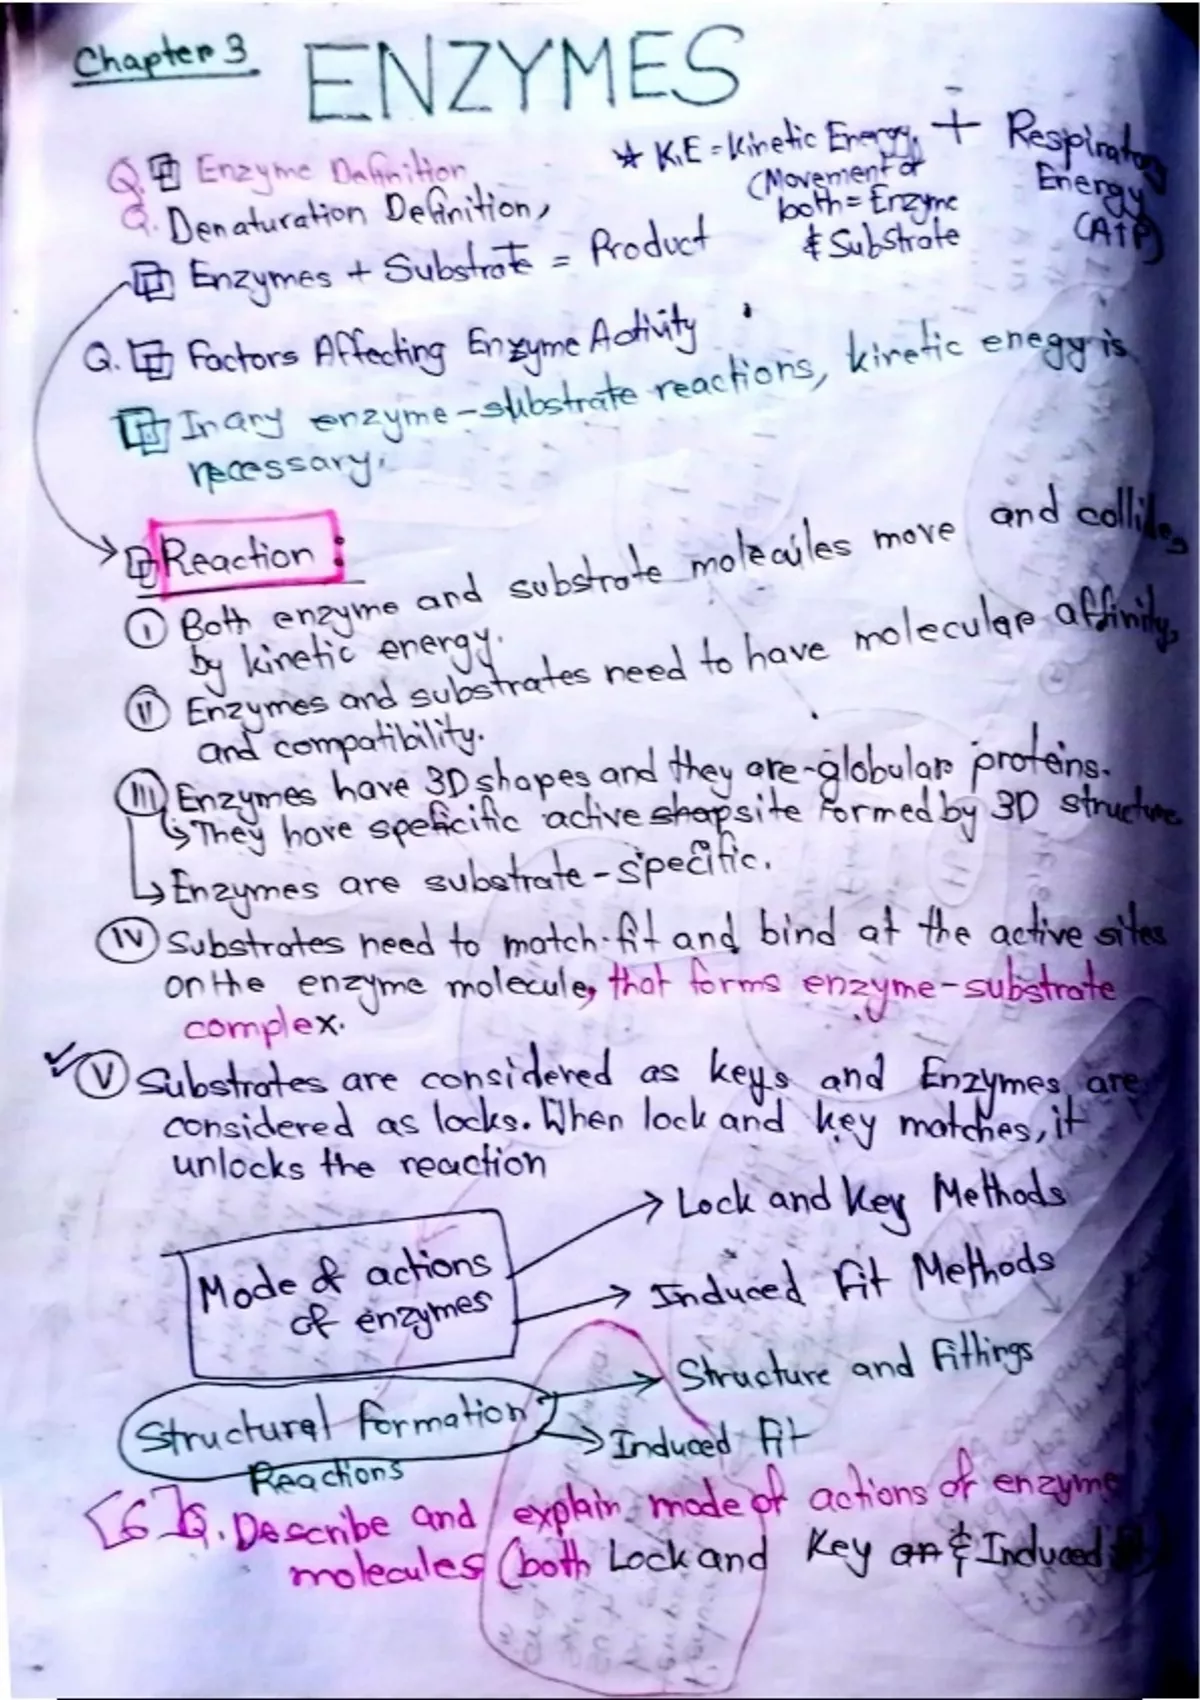 Chapter 3
ENZYMES
Q. Enzyme Definition
Q. Denaturation Definition,
Enzymes + Substrate = Product
* K.E = Kinetic Energy + Respiratory
(Movement of Energy
both = Enzyme (ATP)
& Substrate
Q. Factors Affecting Enzyme Activity
In any enzyme-substrate reactions, kinetic enegy is
necessary.
Reaction :
(I) Both enzyme and substrate molecules move and collide,
by kinetic energy.
(II) Enzymes and substrates need to have molecular affinity,
and compatibility.
(III) Enzymes have 3D shapes and they are globular proteins.
↳ They have speficific active shap site formed by 3D structure
↳ Enzymes are substrate-specific.
(IV) Substrates need to match-fit and bind at the active sites
on the enzyme molecule, that forms enzyme-substrate
complex.
✓ (V) Substrates are considered as keys and Enzymes are
considered as locks. When lock and key matches, it
unlocks the reaction
→ Lock and Key Methods
Mode & actions
of enzymes
→ Induced Fit Methods
→ Structure and fittings
Structural formation
Reactions
→ Induced fit
[6] Q. Describe and explain mode of actions of enzyme
molecules (both Lock and Key an & Induced